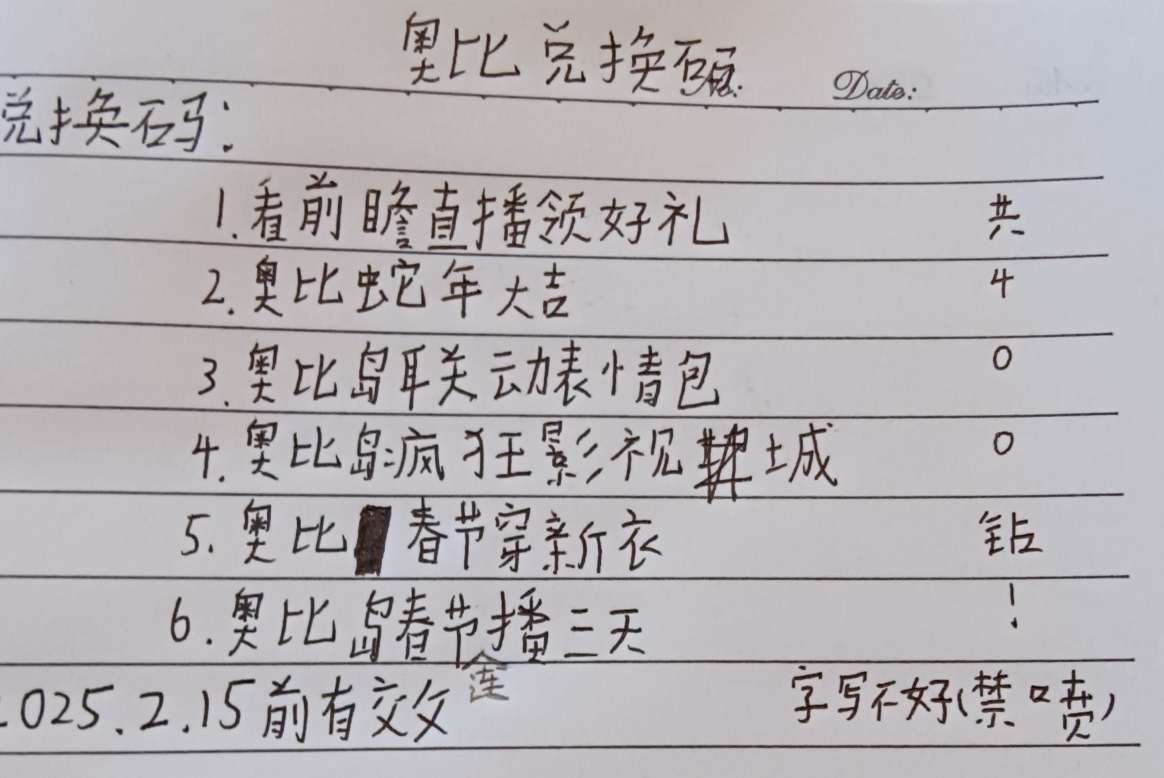 奥比兑换码
No: Date:
兑换码:
1.看前瞻直播领好礼 共
2.奥比蛇年大吉 4
3.奥比岛联关动表情包 0
4.奥比岛疯狂影视城 0
5.奥比春节穿新衣 钻
6.奥比岛春节连播三天 !
2025.2.15前有效 字写不好(禁喷)